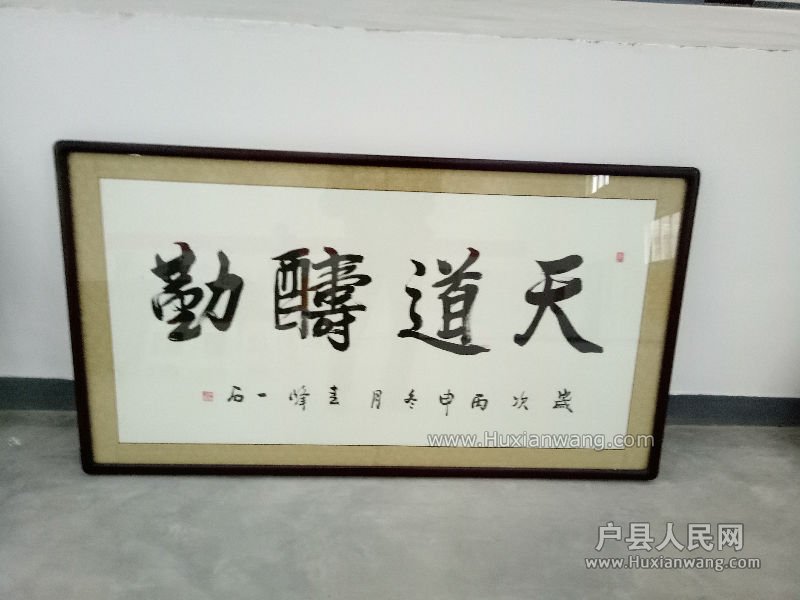 天道酬勤
歲次丙申冬月 峰一石
www.Huxianwang.com
户县人民网
www.Huxianwang.com